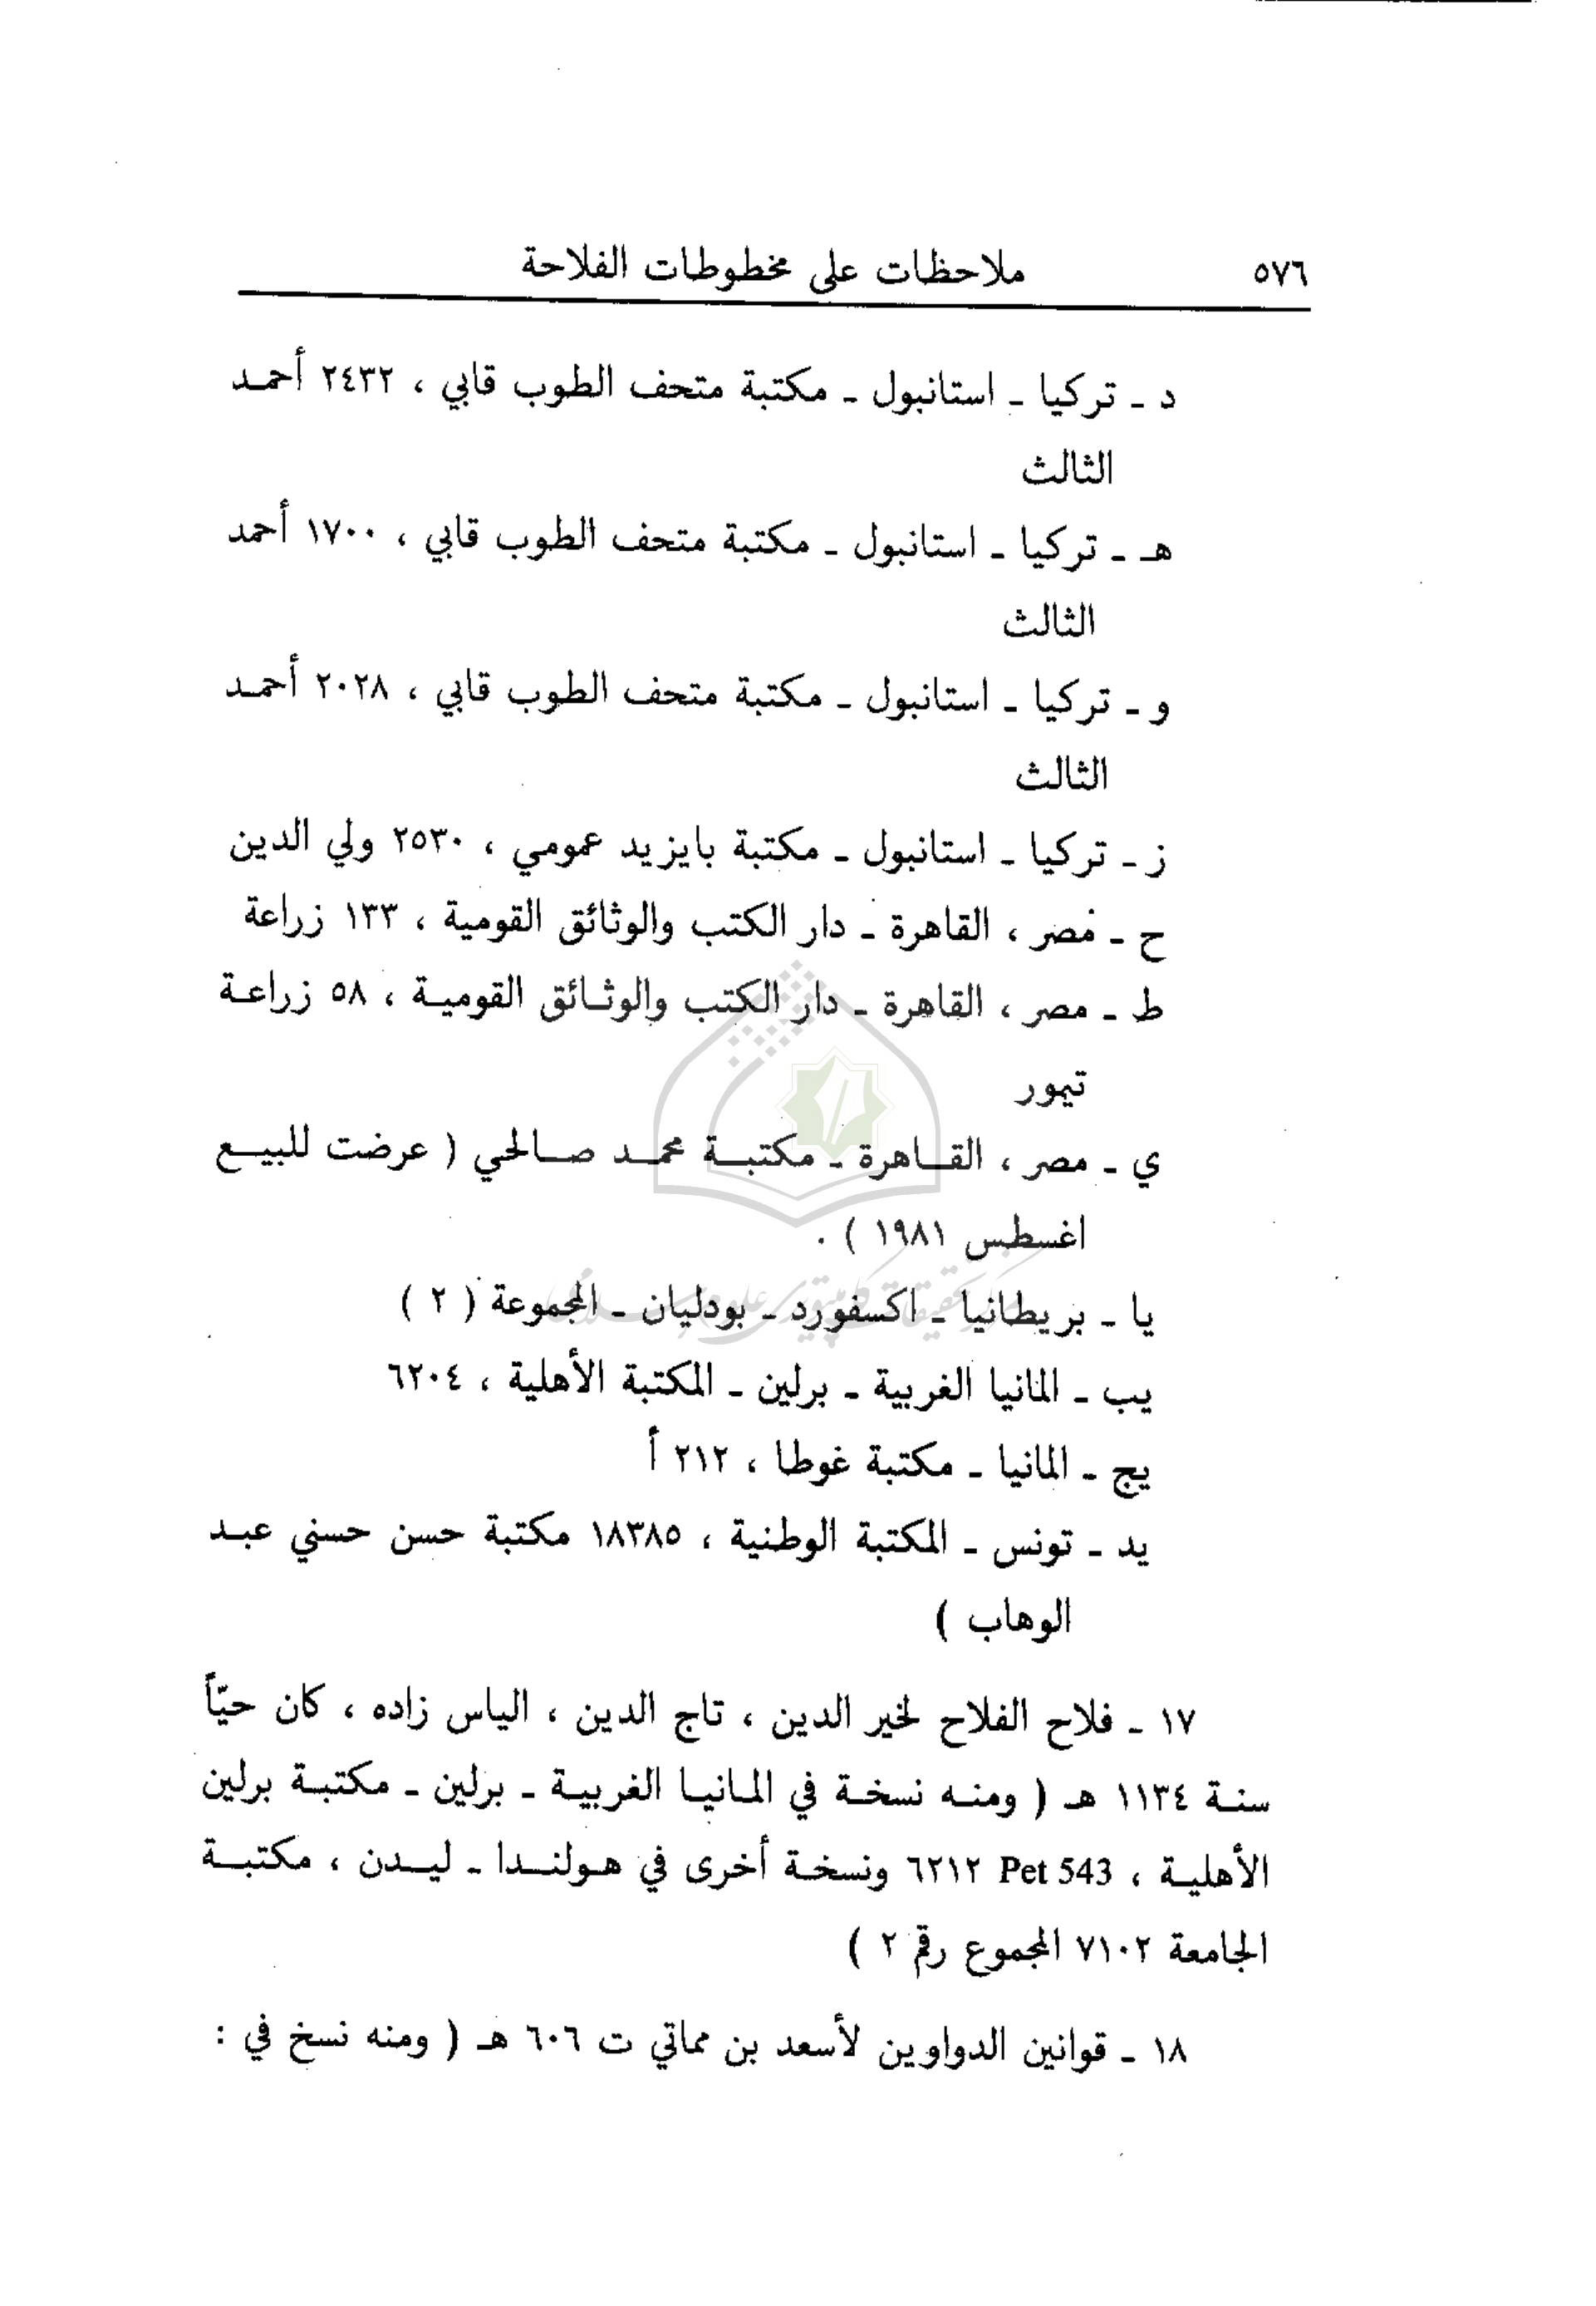 ٥٧٦ ملاحظات على مخطوطات الفلاحة
د ـ تركيا ـ استانبول ـ مكتبة متحف الطوب قابي ، ٢٤٣٢ أحمد
الثالث
هـ ـ تركيا ـ استانبول ـ مكتبة متحف الطوب قابي ، ١٧٠٠ أحمد
الثالث
و ـ تركيا ـ استانبول ـ مكتبة متحف الطوب قابي ، ٢٠٢٨ أحمد
الثالث
ز ـ تركيا ـ استانبول ـ مكتبة بايزيد عمومي ، ٢٥٣٠ ولي الدين
ح ـ مصر ، القاهرة ـ دار الكتب والوثائق القومية ، ١٣٣ زراعة
ط ـ مصر ، القاهرة ـ دار الكتب والوثائق القومية ، ٥٨ زراعة
تيمور
ي ـ مصر ، القاهرة ـ مكتبة محمد صالحي ( عرضت للبيع
اغسطس ١٩٨١ ) .
يا ـ بريطانيا ـ اكسفورد ـ بودليان ـ المجموعة ( ٢ )
يب ـ المانيا الغربية ـ برلين ـ المكتبة الأهلية ، ٦٢٠٤
يج ـ المانيا ـ مكتبة غوطا ، ٢١٢ أ
يد ـ تونس ـ المكتبة الوطنية ، ١٨٣٨٥ مكتبة حسن حسني عبد
الوهاب )
١٧ ـ فلاح الفلاح لخير الدين ، تاج الدين ، الياس زاده ، كان حيّاً
سنة ١١٣٤ هـ ( ومنه نسخة في المانيا الغربية ـ برلين ـ مكتبة برلين
الأهلية ، Pet 543 ٦٢١٢ ونسخة أخرى في هولندا ـ ليدن ، مكتبة
الجامعة ٧١٠٢ المجموع رقم ٢ )
١٨ ـ قوانين الدواوين لأسعد بن مماتي ت ٦٠٦ هـ ( ومنه نسخ في :